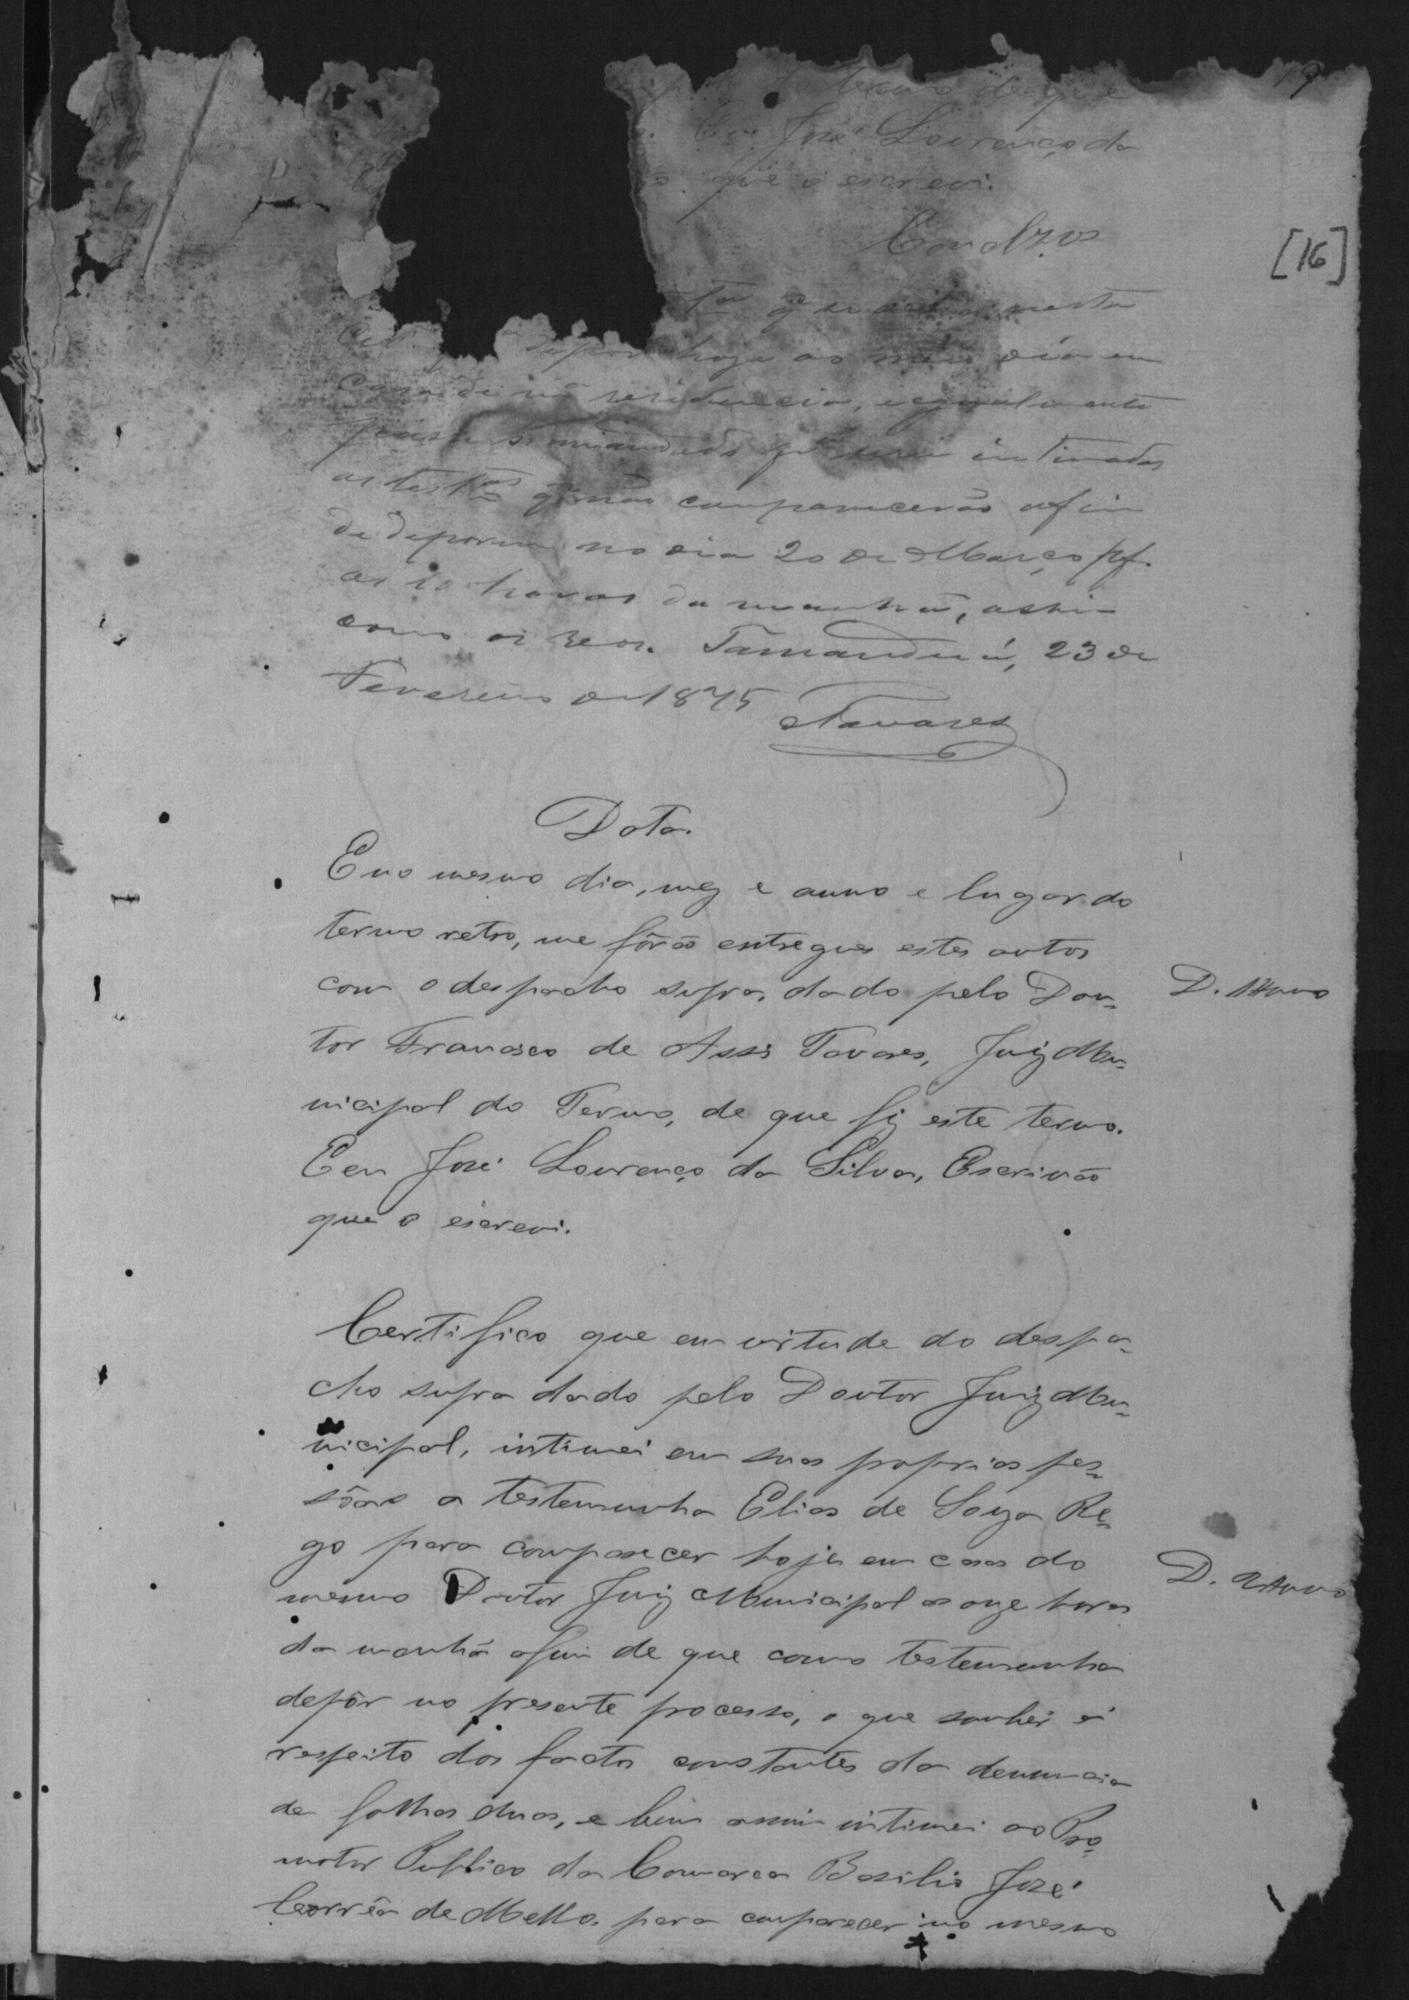 19
termo de que
Eu José Lourenço da
que o escrevi.
[16]
hoje ao meio dia em
casa de residencia, e igualmente
passe se mandado intimadas
as test.as q. não comparecerão afim
de deporem no dia 20 de Março pf.
as 10 horas da manhã, assim
como os reos. Tamanduá, 23 de
Fevereiro de 1875 Tavares
Data.
E no mesmo dia, mez e anno e lugar do
termo retro, me fôrão entregues estes autos
com o despacho supra, dado pelo Dou-
tor Francisco de Assis Tavares, Juiz Mu-
nicipal do Termo, de que fiz este termo.
E eu José Lourenço da Silva, Escrivão
que o escrevi.
Certifico que em virtude do despa-
cho supra dado pelo Doutor Juiz Mu-
nicipal, intimei em suas proprias pes-
sôas a testemunha Elias de Souza Re-
go para comparecer hoje em casa do
mesmo Doutor Juiz Municipal as onze horas
da manhã afim de que como testemunha
depôr no presente processo, o que souber á
respeito dos factos constantes da denuncia
de folhas duas, e bem assim intimei ao Pro-
motor Publico da Comarca Basilio José
Corrêa de Mello, para comparecer no mesmo